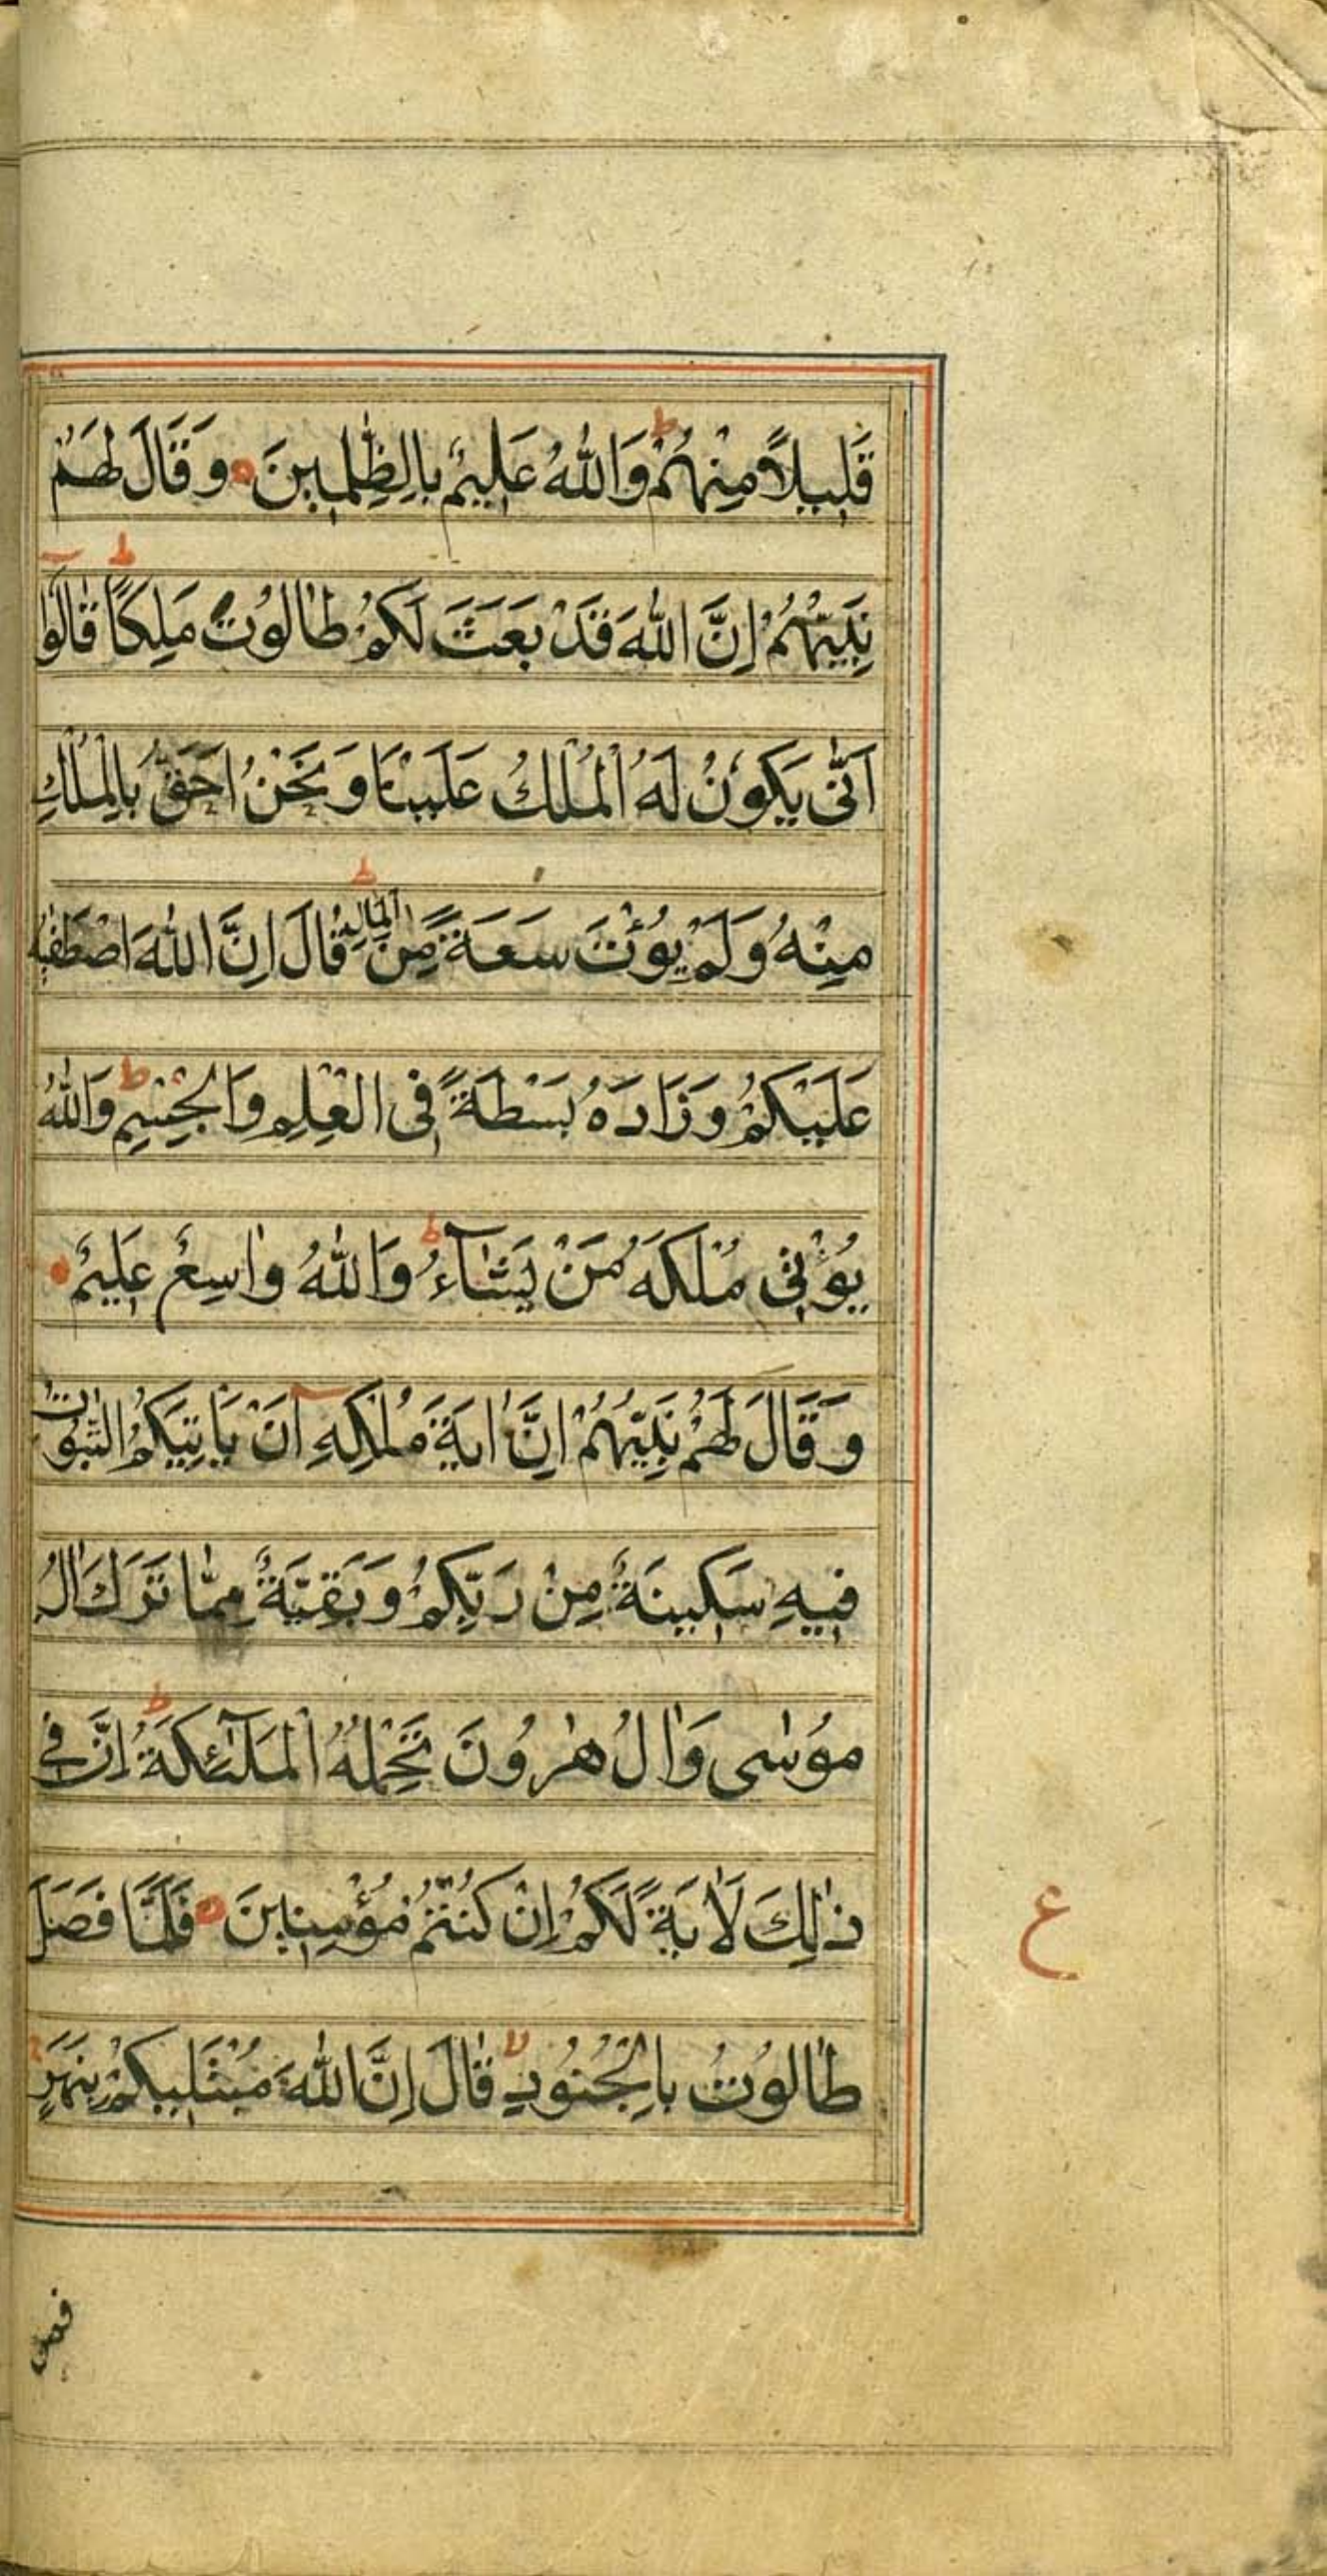 قَلِيلًا مِنْهُمْ ط وَاللهُ عَلِيمٌ بِالظّٰلِمِينَ وَقَالَ لَهُمْ
نَبِيُّهُمْ اِنَّ اللهَ قَدْ بَعَثَ لَكُمْ طَالُوتَ مَلِكًا ط قَالُوٓا
اَنّٰى يَكُونُ لَهُ الْمُلْكُ عَلَيْنَا وَنَحْنُ اَحَقُّ بِالْمُلْكِ
مِنْهُ وَلَمْ يُؤْتَ سَعَةً مِنَ الْمَالِ ط قَالَ اِنَّ اللهَ اصْطَفٰيهُ
عَلَيْكُمْ وَزَادَهُ بَسْطَةً فِى الْعِلْمِ وَالْجِسْمِ ط وَاللهُ
يُؤْتِى مُلْكَهُ مَنْ يَشَآءُ ط وَاللهُ وَاسِعٌ عَلِيمٌ
وَقَالَ لَهُمْ نَبِيُّهُمْ اِنَّ اٰيَةَ مُلْكِهٖٓ اَنْ يَاْتِيَكُمُ التَّابُوتُ
فِيهِ سَكِينَةٌ مِنْ رَبِّكُمْ وَبَقِيَّةٌ مِمَّا تَرَكَ اٰلُ
مُوسٰى وَاٰلُ هٰرُونَ تَحْمِلُهُ الْمَلٰٓئِكَةُ ط اِنَّ فِى
ذٰلِكَ لَاٰيَةً لَكُمْ اِنْ كُنْتُمْ مُؤْمِنِينَ فَلَمَّا فَصَلَ
ع
طَالُوتُ بِالْجُنُودِ لا قَالَ اِنَّ اللهَ مُبْتَلِيكُمْ بِنَهَرٍ
فمن